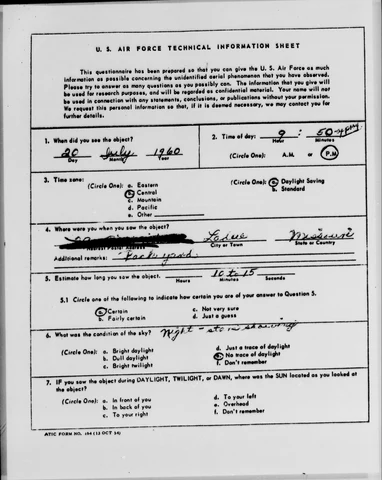 U. S. AIR FORCE TECHNICAL INFORMATION SHEET
This questionnaire has been prepared so that you can give the U. S. Air Force as much
information as possible concerning the unidentified aerial phenomenon that you have observed.
Please try to answer as many questions as you possibly can. The information that you give will
be used for research purposes, and will be regarded as confidential material. Your name will not
be used in connection with any statements, conclusions, or publications without your permission.
We request this personal information so that, if it is deemed necessary, we may contact you for
further details.
1. When did you see the object?
20 July 1960
Day Month Year
2. Time of day: 9 : 50
Hour Minutes
(Circle One): A.M. or P.M.
3. Time zone:
(Circle One): a. Eastern
b. Central
c. Mountain
d. Pacific
e. Other
(Circle One): a. Daylight Saving
b. Standard
4. Where were you when you saw the object?
Ladue Missouri
Nearest Postal Address City or Town State or Country
Additional remarks: Back yard
5. Estimate how long you saw the object. 10 to 15
Hours Minutes Seconds
5.1 Circle one of the following to indicate how certain you are of your answer to Question 5.
a. Certain
b. Fairly certain
c. Not very sure
d. Just a guess
6. What was the condition of the sky? Night - stars showing
(Circle One): a. Bright daylight
b. Dull daylight
c. Bright twilight
d. Just a trace of daylight
e. No trace of daylight
f. Don't remember
7. IF you saw the object during DAYLIGHT, TWILIGHT, or DAWN, where was the SUN located as you looked at
the object?
(Circle One): a. In front of you
b. In back of you
c. To your right
d. To your left
e. Overhead
f. Don't remember
ATIC FORM NO. 164 (13 OCT 54)